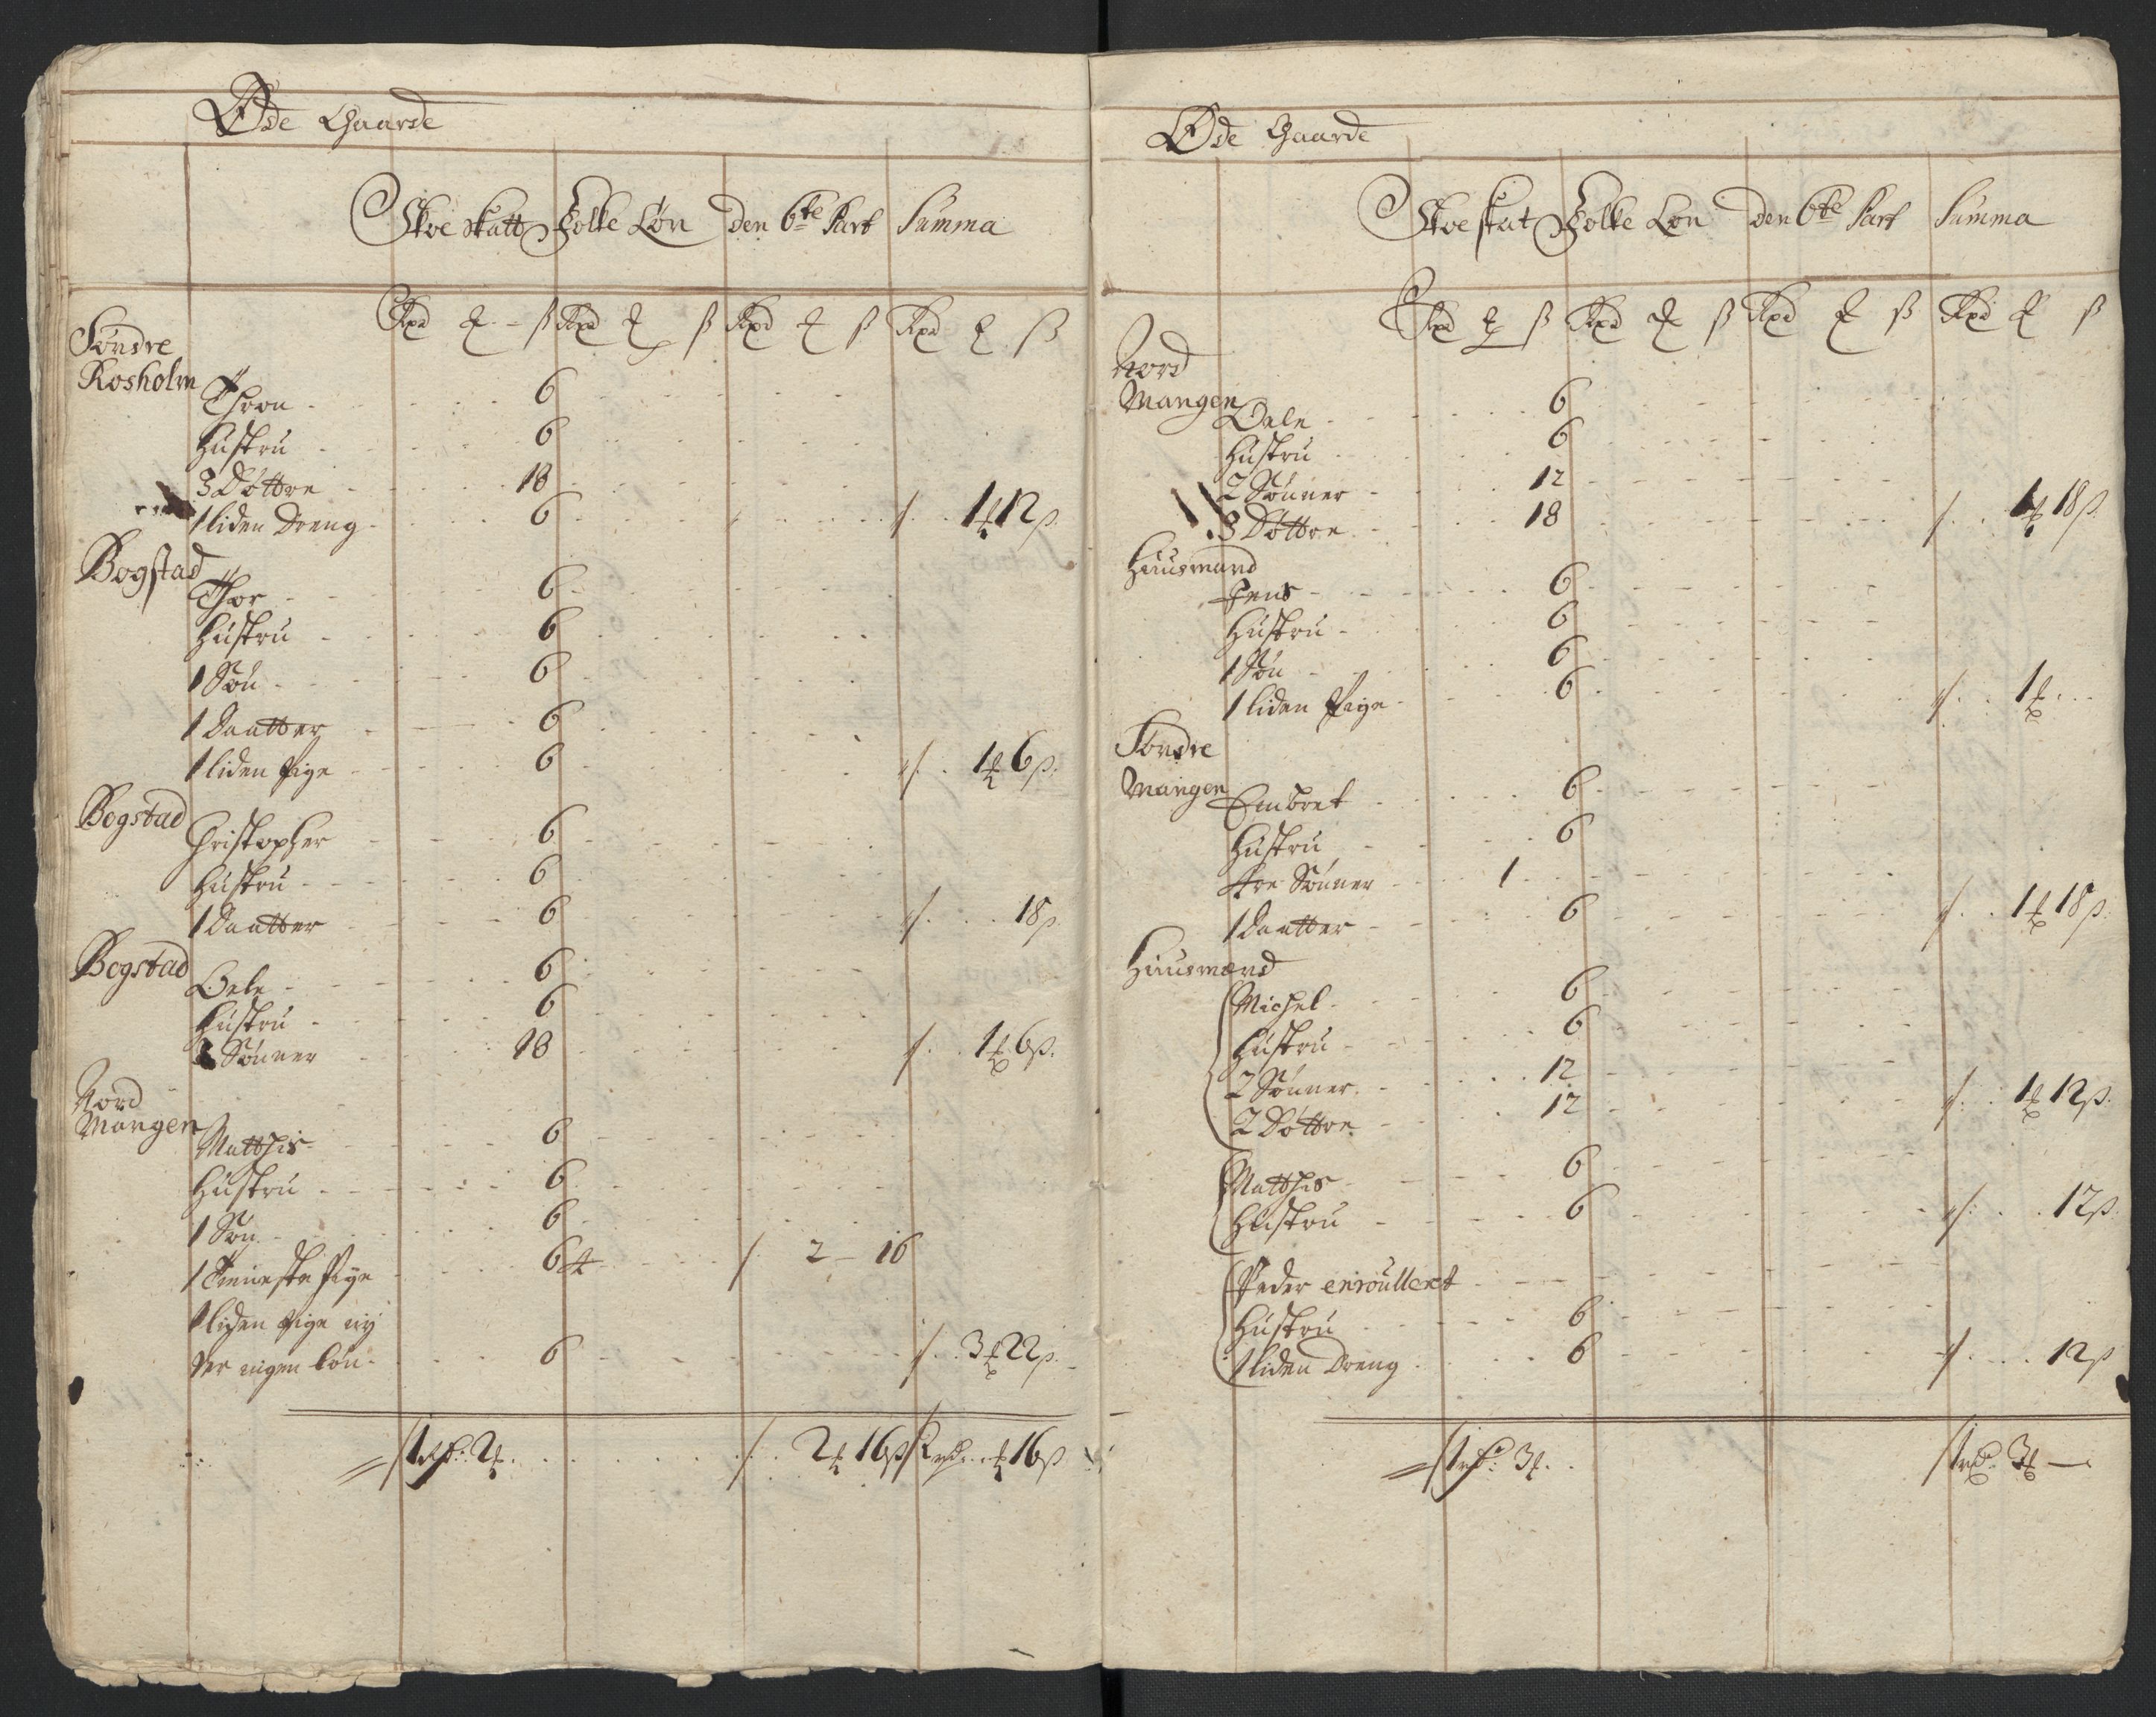 Øde Gaarde
Skoe skatt Folke Løn den 6te Part Summa
Rxd ß Rxd ß Rxd ß Rxd ß
Søndre
Rosholm Thron 6
Hustru 6
3 Døttre 18
1 liden Dreng 6 1 12 ß
Bogstad Thor 6
Hustru 6
1 Søn 6
1 Daatter 6
1 liden Pige 6 1 6 ß
Bogstad Christopher 6
Hustru 6
1 Daatter 6 18 ß
Bogstad Oele 6
Hustru 6
3 Sønner 18 1 6 ß
Nord
Mangen Matthis 6
Hustru 6
1 Søn 6
1 Tieneste Pige 6 4 2 – 16
1 liden Pige
Løn 6 3 22 ß
1 rd: 2 2 16 ß 2 rd 16 ß
Øde Gaarde
Skoe skat Folke Løn den 6te Part Summa
Rxd ß Rxd ß Rxd ß Rxd ß
Nord
Mangen Oele 6
Hustru 6
2 Sønner 12
3 Døttre 18 1 18 ß
Huusmand
Jens 6
Hustru 6
1 Søn 6
1 liden Pige 6 1
Søndre
Mangen Embret 6
Hustru 6
tre Sønner 1
1 Daatter 6 1 18 ß
Huusmænd
Michel 6
Hustru 6
2 Sønner 12
2 Døttre 12 1 12 ß
Matthis 6
Hustru 6 12 ß
Peder enroulleret
Hustru 6
1 liden Dreng 6 12 ß
1 rd: 3 1 rd: 3 –